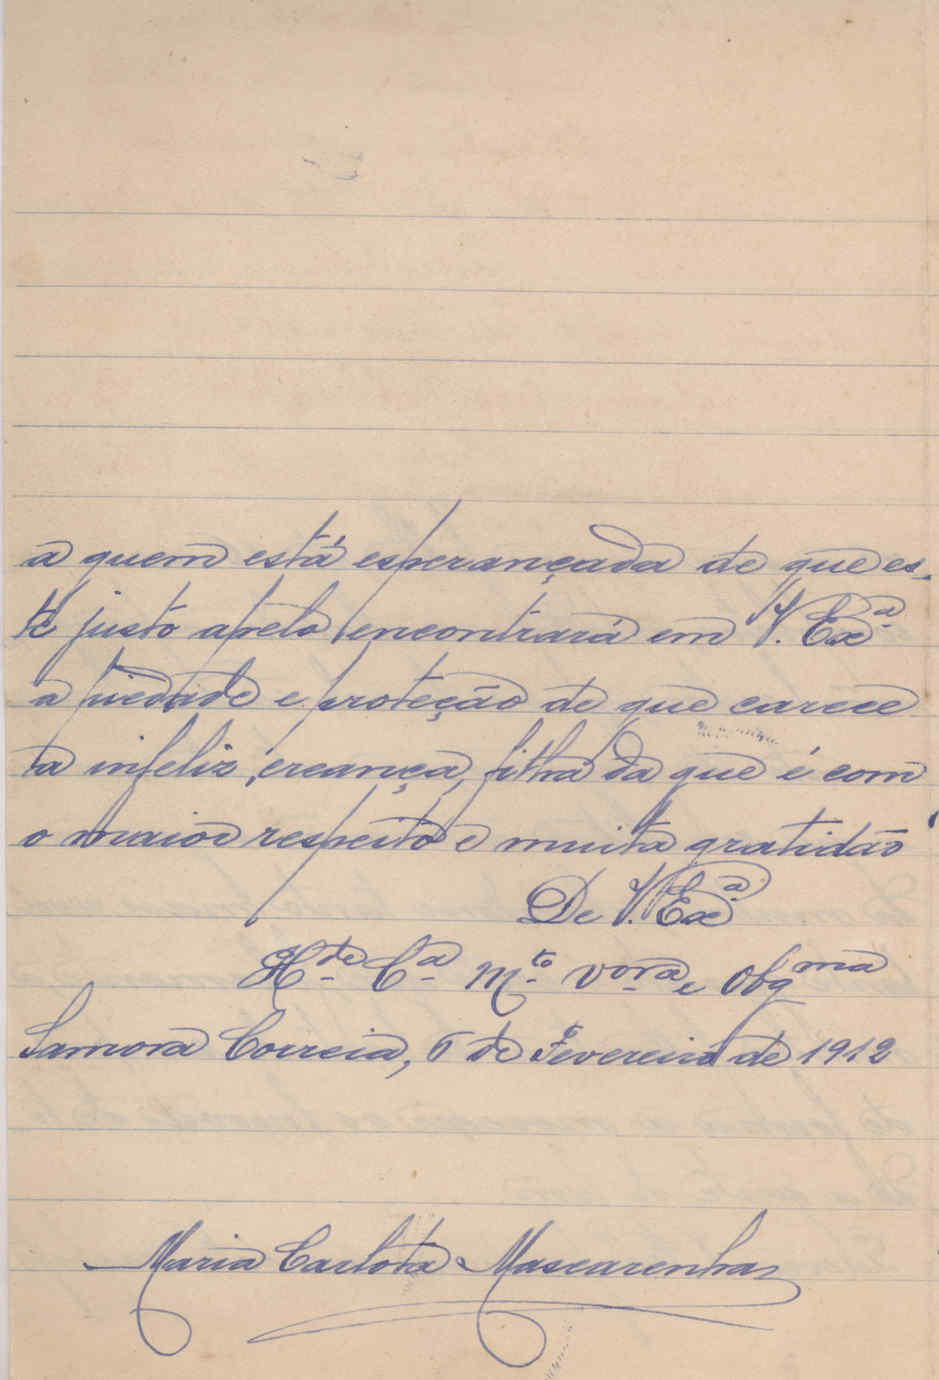 a quem está esperançada de que es-
te justo apelo encontrará em V. Exª
a piedade e proteção de que carece
a infeliz creança, filha da que é com
o maior respeito e muita gratidão
De V. Exª
Cª Mto vora e Obgma
Samora Correia, 6 de Fevereiro de 1912
Maria Carlota Mascarenhas